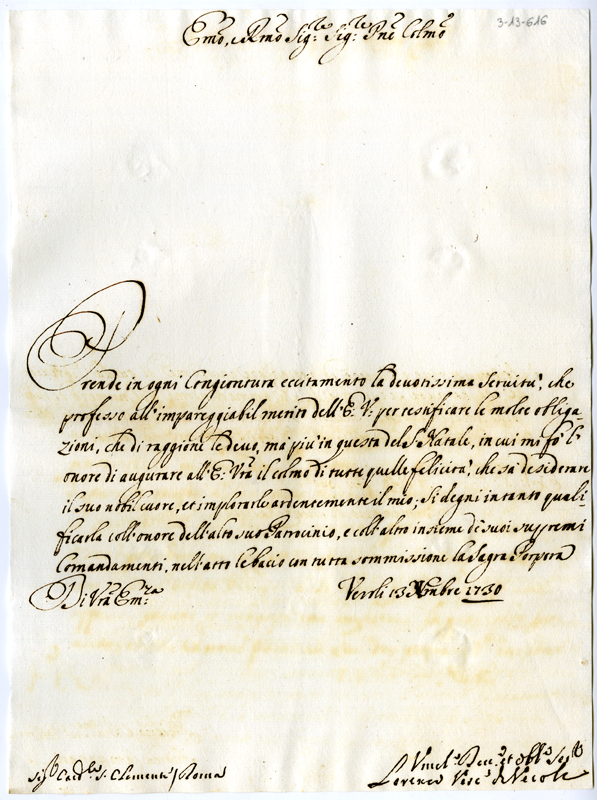 3-13-616
Emo, e Rmo Sig:re Sig:re Pne Colmo
Prende in ogni Congiontura eccitamento la devotissima servitù, che
professo all'impareggiabil merito dell'E: V: per testificare le molte obliga-
zioni, che di raggione le devo, ma più in questa del S. Natale, in cui mi fò l'
onore di augurare all'E: Vra il colmo di tutte quelle felicità, che sà desiderare
il suo nobil cuore, et implorarle ardentemente il mio; Si degni intanto quali-
ficarla coll'onore dell'alto suo Patrocinio, e coll'altro insieme de suoi supremi
Comandamenti, nell'atto le bacio con tutta sommissione la Sagra Porpora
Di Vra Em:za
Veroli 13 Xbre 1730
Sig Card:le S. Clemente / Roma
Umil:o Dev:o et obb:o Se
Lorenzo Vesc:o di Veroli